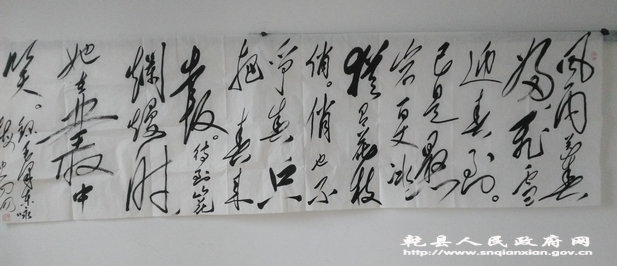 风雨送春
归飞雪
迎春到。
已是悬
崖百丈冰
犹有花枝
俏。俏也不
争春只
把春来
报。待到山花
烂熳时
她在丛中
笑。录毛泽东咏
梅
乾县人民政府网
www.snqianxian.gov.cn